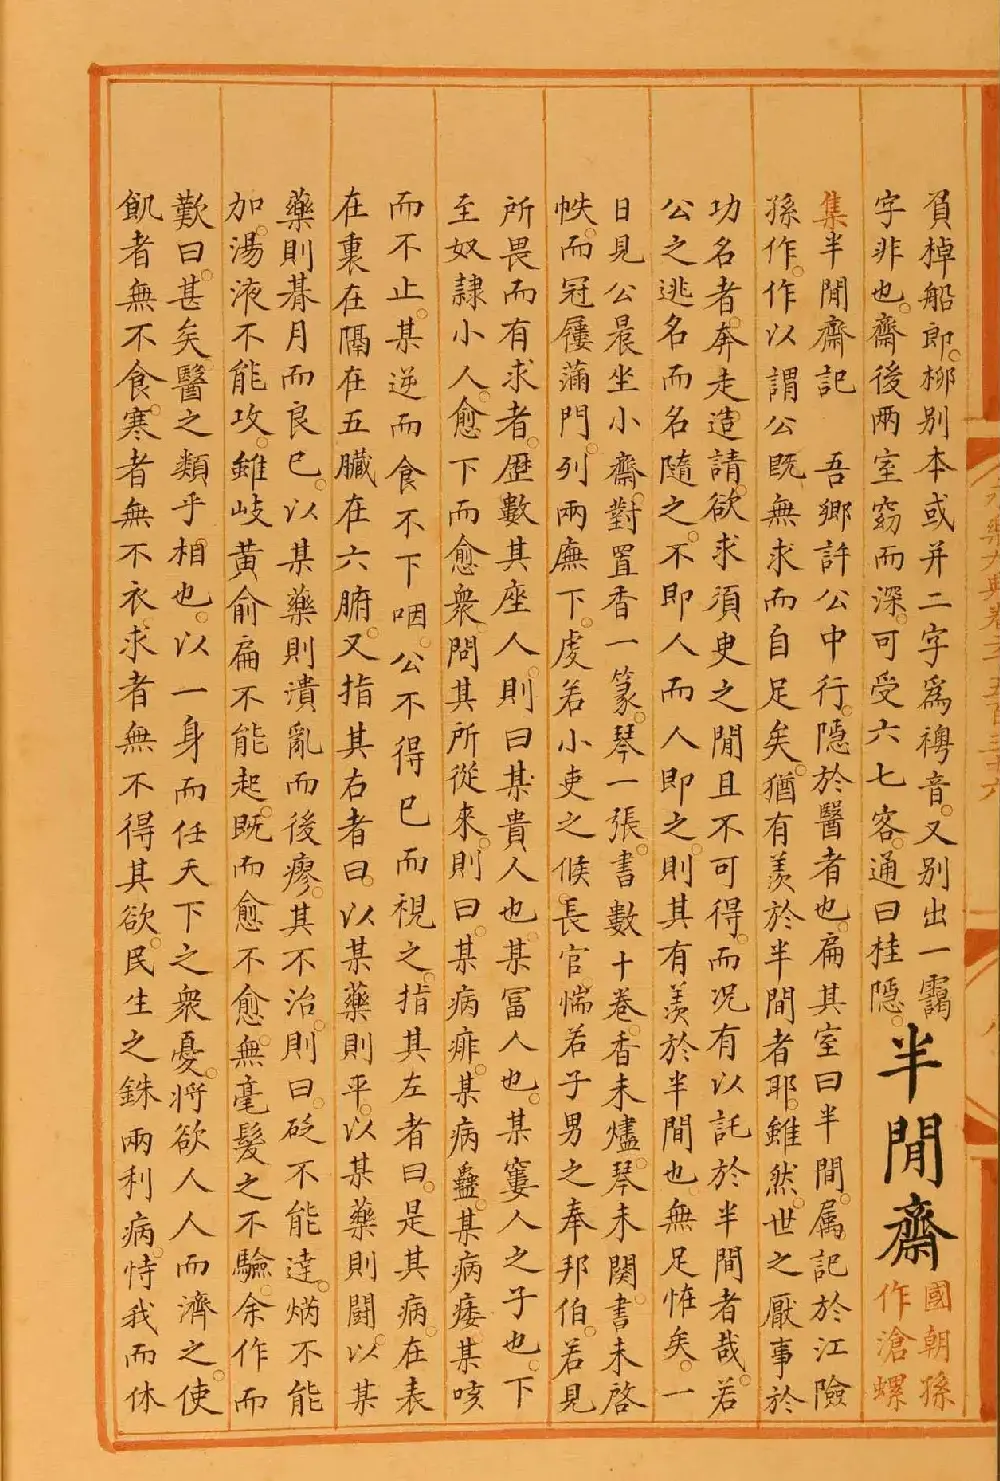 負棹船郎。柳別本或并二字爲禣音。又別出一靄
字非也。齋後兩室窈而深。可受六七客。通曰桂隱。
半閒齋
國朝孫
作滄螺
集半閒齋記 吾鄉許公中行。隱於醫者也。扁其室曰半閒。属記於江險
孫作。作以謂公既無求而自足矣。猶有羨於半閒者耶。雖然。世之厭事於
功名者。奔走造請。欲求須臾之閒且不可得。而况有以託於半閒者哉。若
公之逃名而名隨之。不即人而人即之。則其有羨於半閒也。無足惟矣。一
日見公晨坐小齋。對置香一篆。琴一張。書數十卷。香未燼。琴未関。書未啓
帙。而冠屨蒲門。列兩廡下。虔若小吏之候長官。惴若子男之奉邦伯。若見
所畏而有求者。歷數其座人。則曰某貴人也。某冨人也。某窶人之子也。下
至奴隷小人。愈下而愈衆。問其所從來。則曰某病痱。某病蠱。某病痿。某咳
而不止。某逆而食不下咽。公不得已而視之。指其左者曰。是其病。在表
在裏在隔在五臓在六腑。又指其右者曰。以某藥則平。以某藥則鬪。以某
藥則朞月而良已。以某藥則潰亂而後瘳。其不治。則曰。砭不能達。焫不能
加。湯液不能攻。雖岐黄俞扁不能起。既而愈不愈。無毫髮之不驗。余作而
歎曰。甚矣醫之類乎相也。以一身而任天下之衆憂。將欲人人而濟之。使
飢者無不食。寒者無不衣。求者無不得其欲。民生之銖兩利病。恃我而休